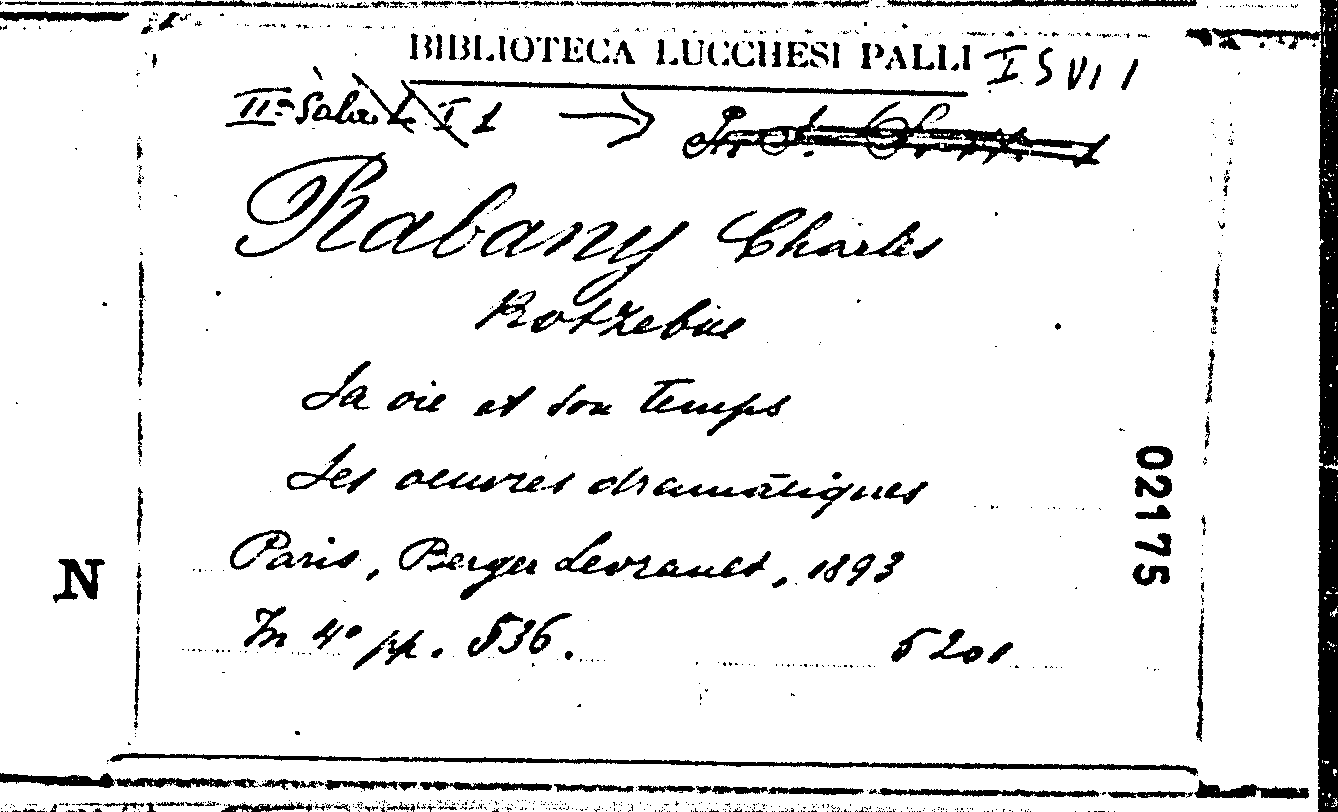 BIBLIOTECA LUCCHESI PALLI I S VI 1
IIª Sala L I 1 →
Rabany Charles
Kotzebue
Sa vie et son temps
Ses oeuvres dramatiques
Paris, Berger Levrault, 1893
In 4º pp. 536. 5201
02175
N